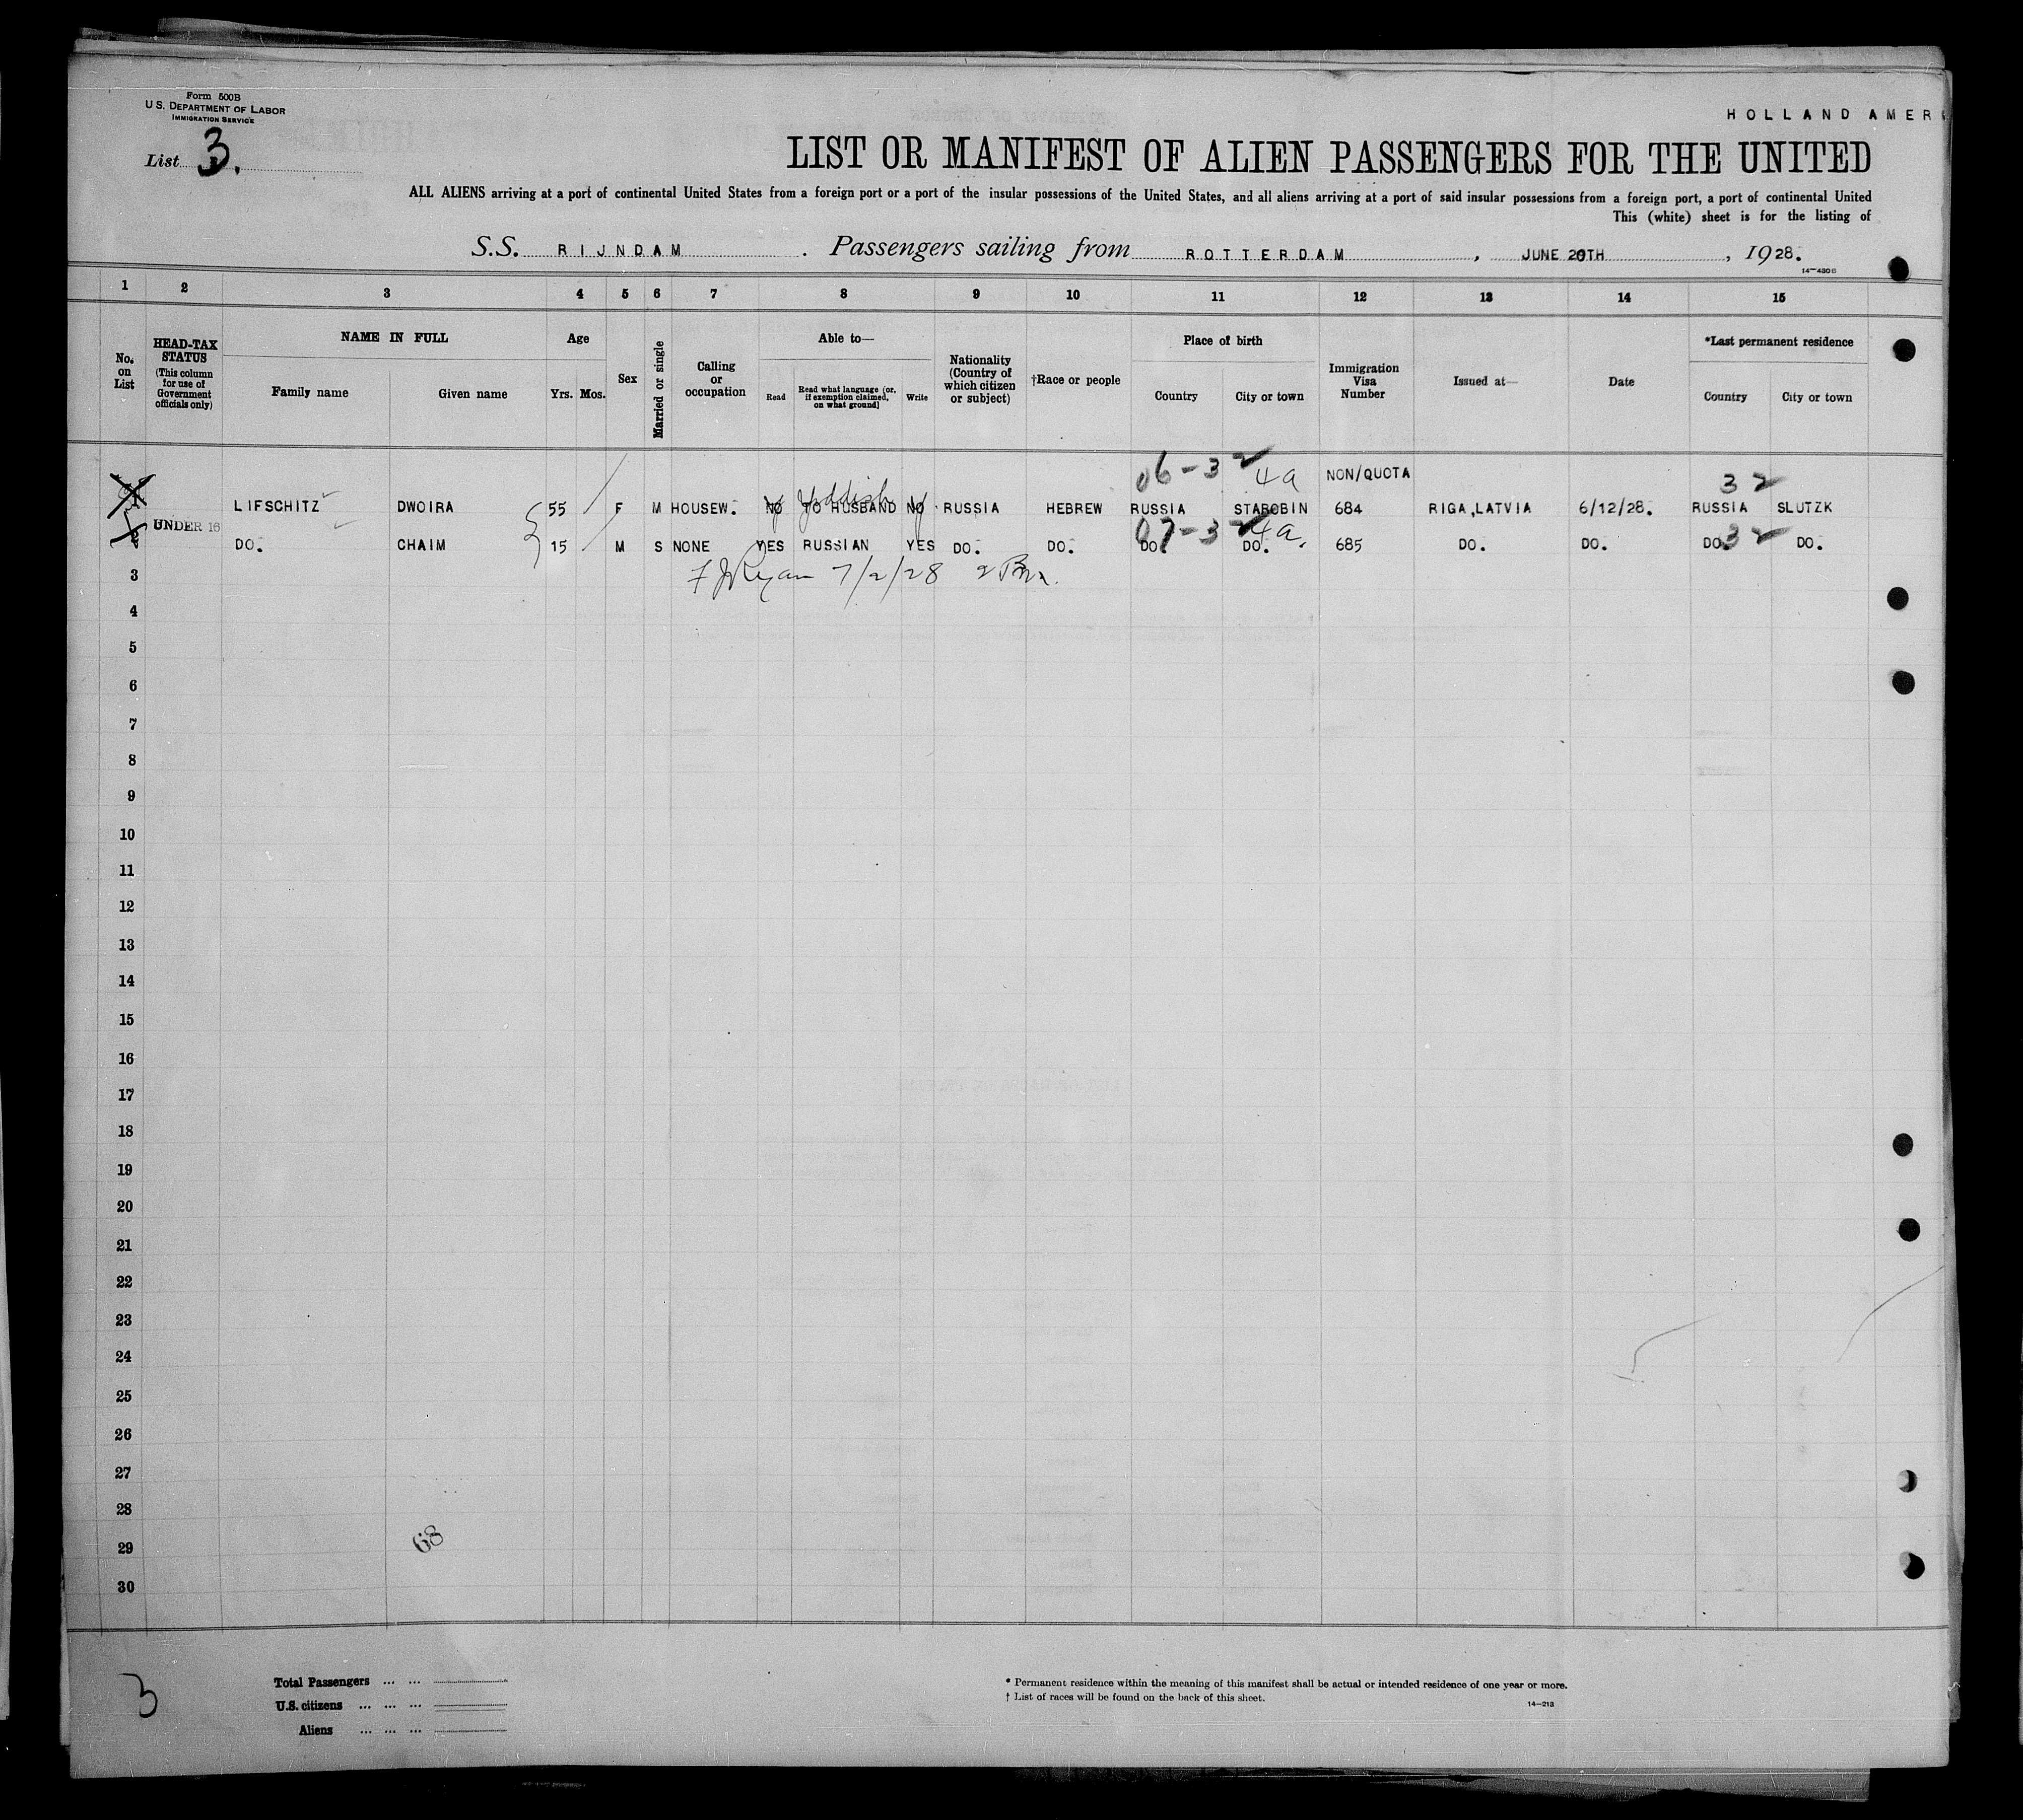 Form 500B
U.S. DEPARTMENT OF LABOR
IMMIGRATION SERVICE
List 3.
HOLLAND AMER
LIST OR MANIFEST OF ALIEN PASSENGERS FOR THE UNITED
ALL ALIENS arriving at a port of continental United States from a foreign port or a port of the insular possessions of the United States, and all aliens arriving at a port of said insular possessions from a foreign port, a port of continental United
This (white) sheet is for the listing of
S.S. RIJNDAM. Passengers sailing from ROTTERDAM, JUNE 20TH, 1928.
1 2 3 4 5 6 7 8 9 10 11 12 13 14 15
No. on List
HEAD-TAX STATUS (This column for use of Government officials only)
NAME IN FULL
Family name Given name
Age
Yrs. Mos.
Sex
Married or single
Calling or occupation
Able to—
Read Read what language (or, if exemption claimed, on what ground) Write
Nationality (Country of which citizen or subject)
†Race or people
Place of birth
Country City or town
Immigration Visa Number
Issued at—
Date
*Last permanent residence
Country City or town
06-32 4a NON/QUOTA 32
LIFSCHITZ DWOIRA 55 F M HOUSEW. NO Yiddish TO HUSBAND NO RUSSIA HEBREW RUSSIA STAROBIN 684 RIGA,LATVIA 6/12/28. RUSSIA SLUTZK
07-32 4a. 32
2 UNDER 16 DO. CHAIM 15 M S NONE YES RUSSIAN YES DO. DO. DO. DO. 685 DO. DO. DO. DO.
3 F J Ryan 7/2/28
4
5
6
7
8
9
10
11
12
13
14
15
16
17
18
19
20
21
22
23
24
25
26
27
28
29
30
68
3
Total Passengers ... ...
U.S. citizens ... ... ...
Aliens ... ... ...
* Permanent residence within the meaning of this manifest shall be actual or intended residence of one year or more.
† List of races will be found on the back of this sheet.
14—213